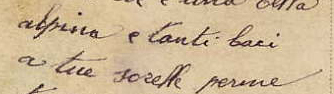 è una bella
alpina e tanti baci
a tue sorelle perme